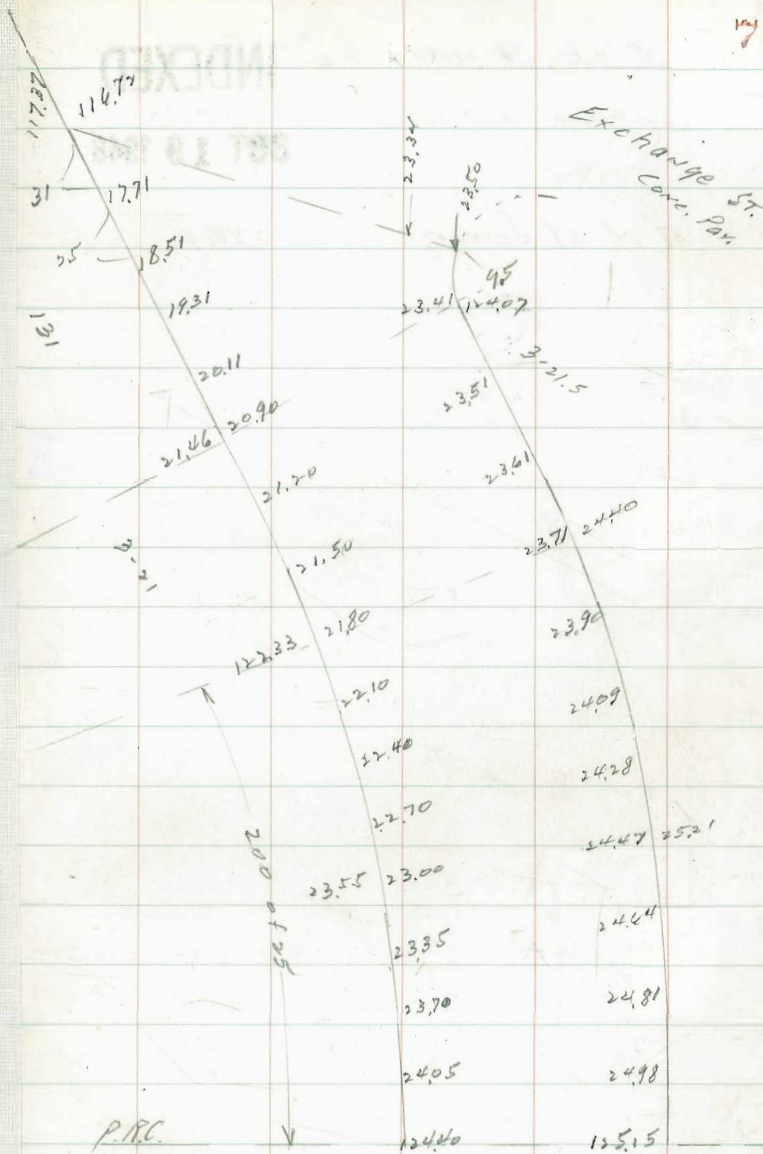 INDEXED
OCT 19 1948
Exchange St.
Conc. Pav.
117.87
116.72
31
17.71
25
18.51
131
19.31
20.11
20.90
21.46
21.20
21.50
21.80
122.33
22.10
22.40
22.70
23.55 23.00
23.35
23.70
24.05
124.40
200 of 25
P.R.C.
23.34
23.50
45
23.41 124.07
3-21.5
23.51
23.61
23.71 24.40
23.90
24.09
24.28
24.47 25.21
24.64
24.81
24.98
125.15